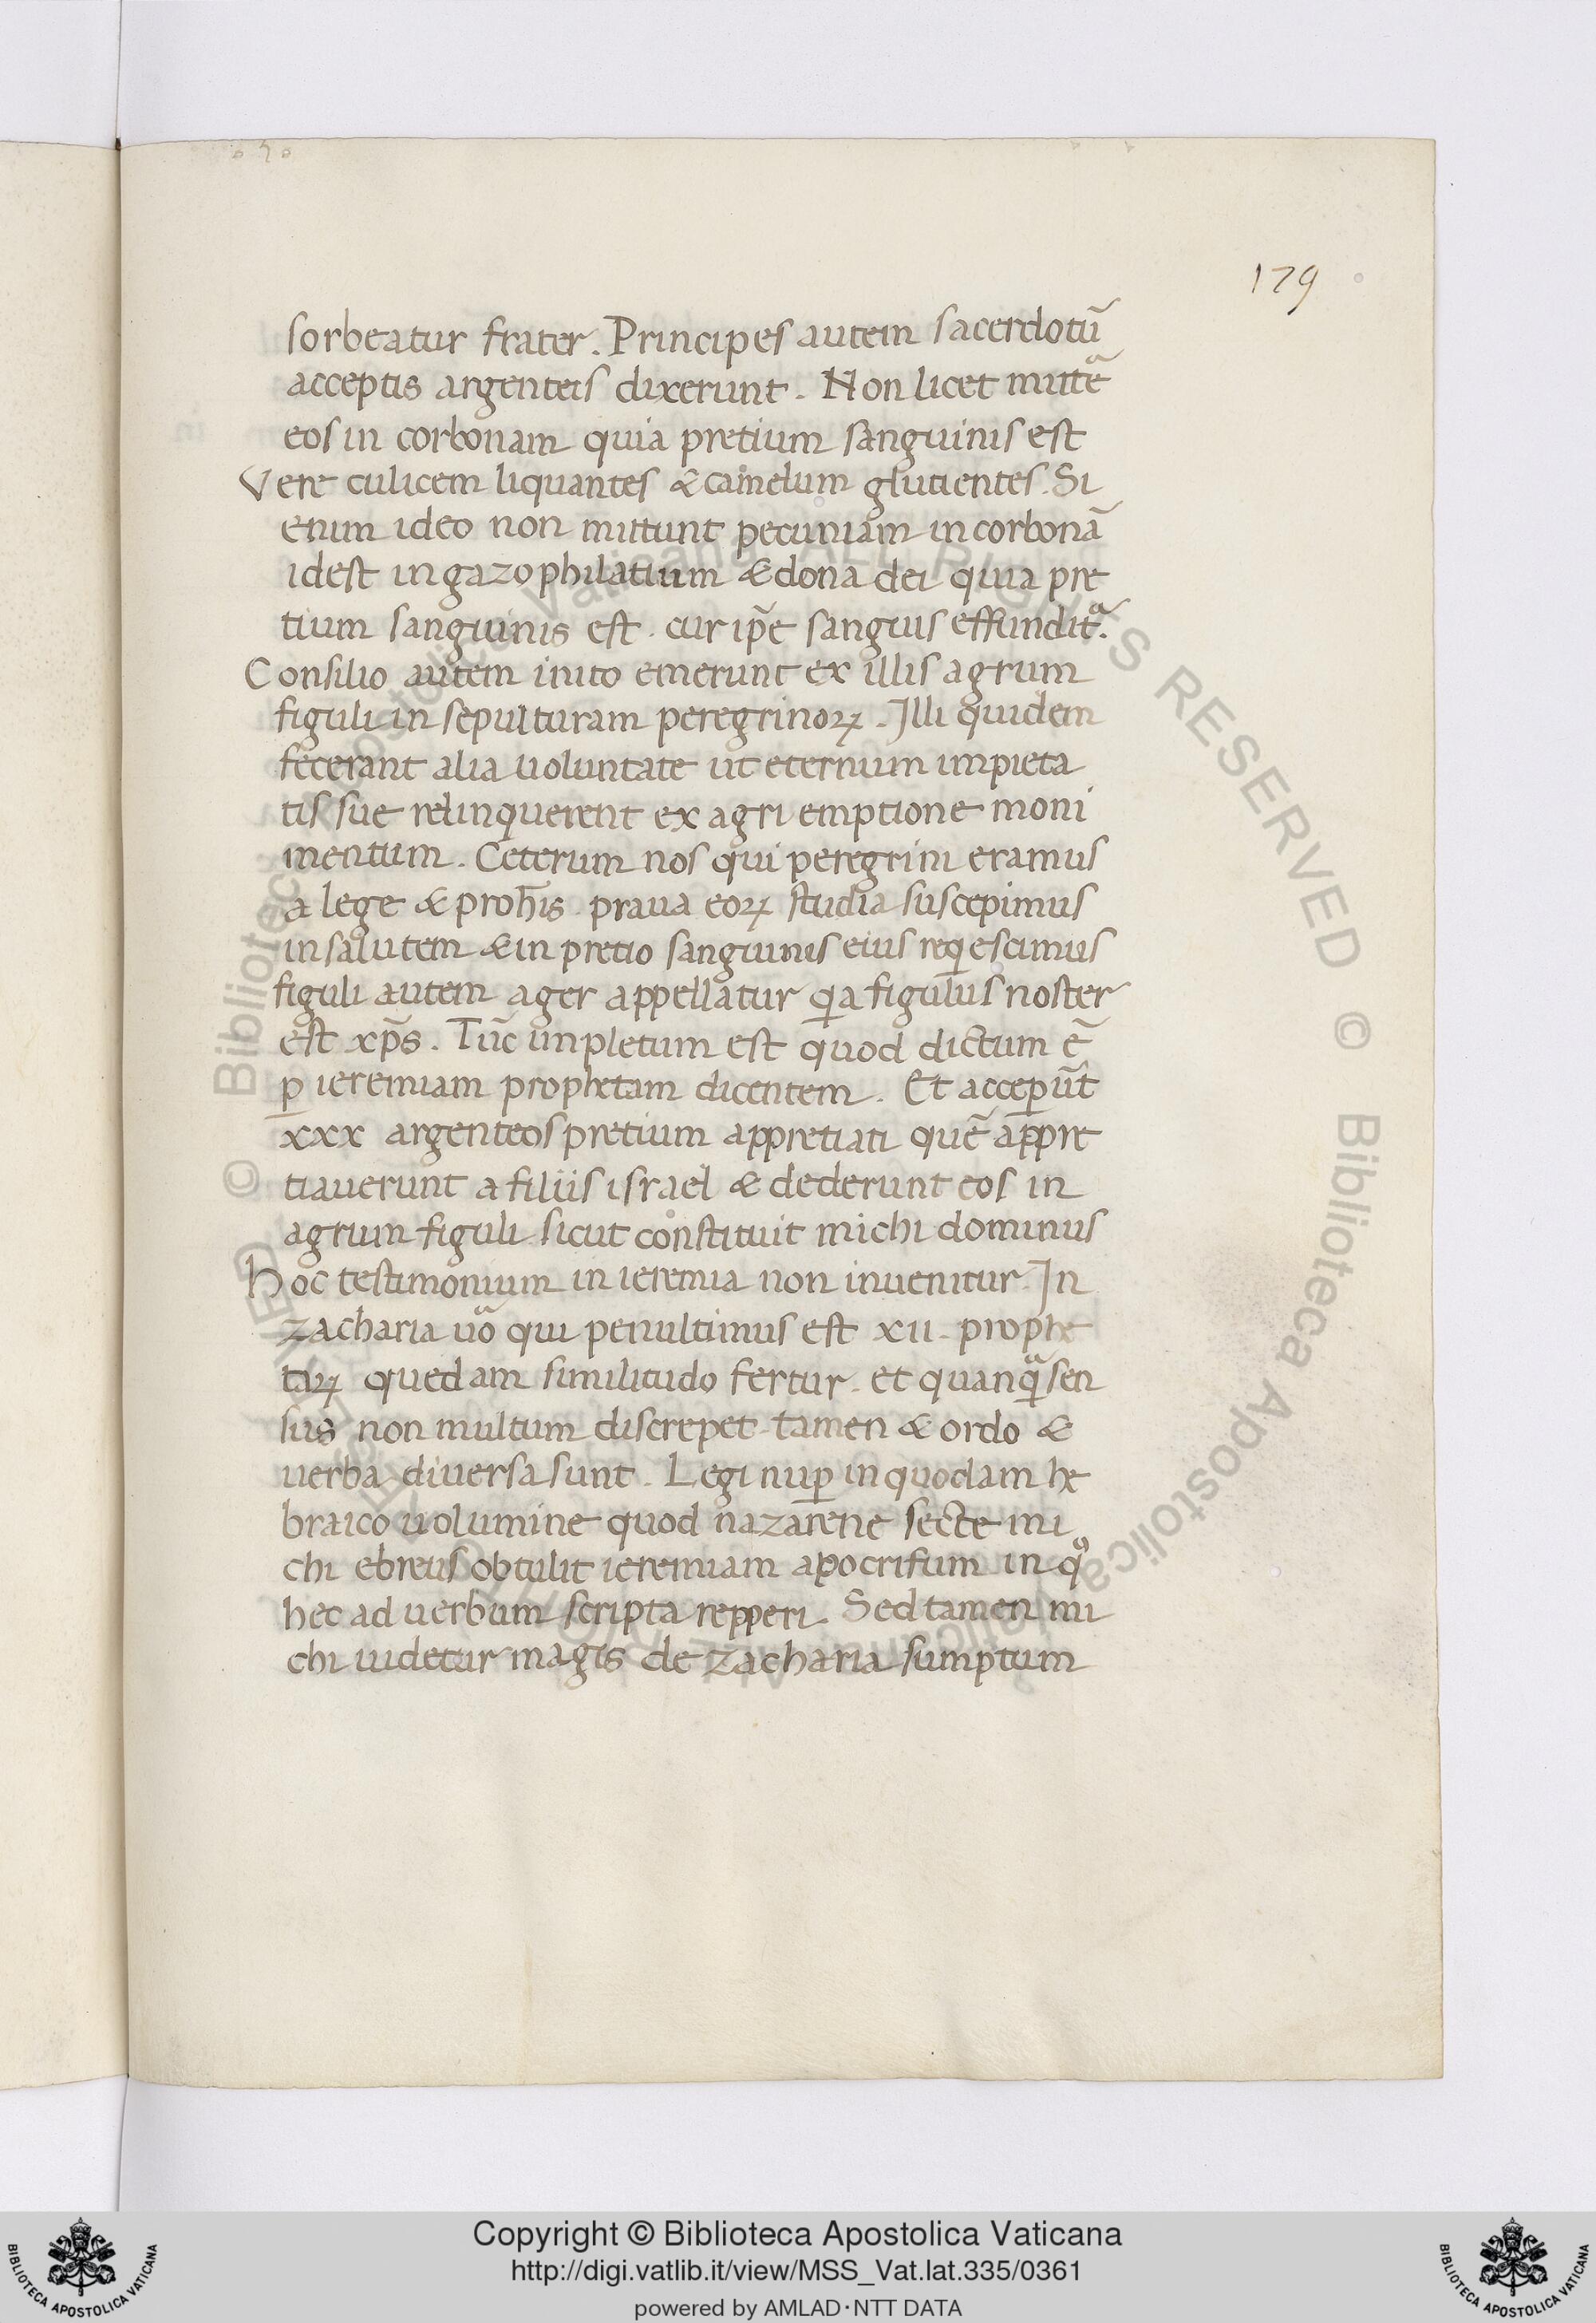 179
sorbeatur frater. Principes autem sacerdotū
acceptis argenteis dixerunt. Non licet mittē
eos in corbonam quia pretium sanguinis est
Vere culicem liquantes & camelum glutientes. Si
enim ideo non mittunt pecuniam in corbonā
idest in gazophilatium & dona dei quia pre
tium sanguinis est. cur ip̄e sanguis effundit᷑.
Consilio autem inito emerunt ex illis agrum
figuli in sepulturam peregrinoꝝ. Illi quidem
fecerant alia uoluntate ut eternum impieta
tis sue relinquerent ex agri emptione moni
mentum. Ceterum nos qui peregrini eramus
a lege & proh̄is. praua eoꝝ studia suscepimus
in salutem & in pretio sanguinis eius reqescimus
figuli autem ager appellatur qa figulus noster
est xp̄s. Tūc impletum est quod dictum ē
ꝑ ieremiam prophetam dicentem. Et acceꝑūt
xxx argenteos pretium appretiati quē appre
tiauerunt a filiis israel & dederunt eos in
agrum figuli sicut constituit michi dominus
Hoc testimonium in ieremia non inuenitur. In
zacharia uō qui penultimus est xii. prophe
taꝝ quedam similitudo fertur. et quanqᷓ sen
sus non multum discrepet. tamen & ordo &
uerba diuersa sunt. Legi nuꝑ in quodam he
braico uolumine quod nazarene secte mi
chi ebreus obtulit ieremiam apocrifum in qͦ
hec ad uerbum scripta repperi. Sed tamen mi
chi uidetur magis de zacharia sumptum
© Biblioteca Apostolica Vaticana ALL RIGHTS RESERVED © Biblioteca Apostolica Vaticana ALL RIGHTS RESERVED
BIBLIOTECA APOSTOLICA VATICANA
Copyright © Biblioteca Apostolica Vaticana
http://digi.vatlib.it/view/MSS_Vat.lat.335/0361
powered by AMLAD·NTT DATA
BIBLIOTECA APOSTOLICA VATICANA